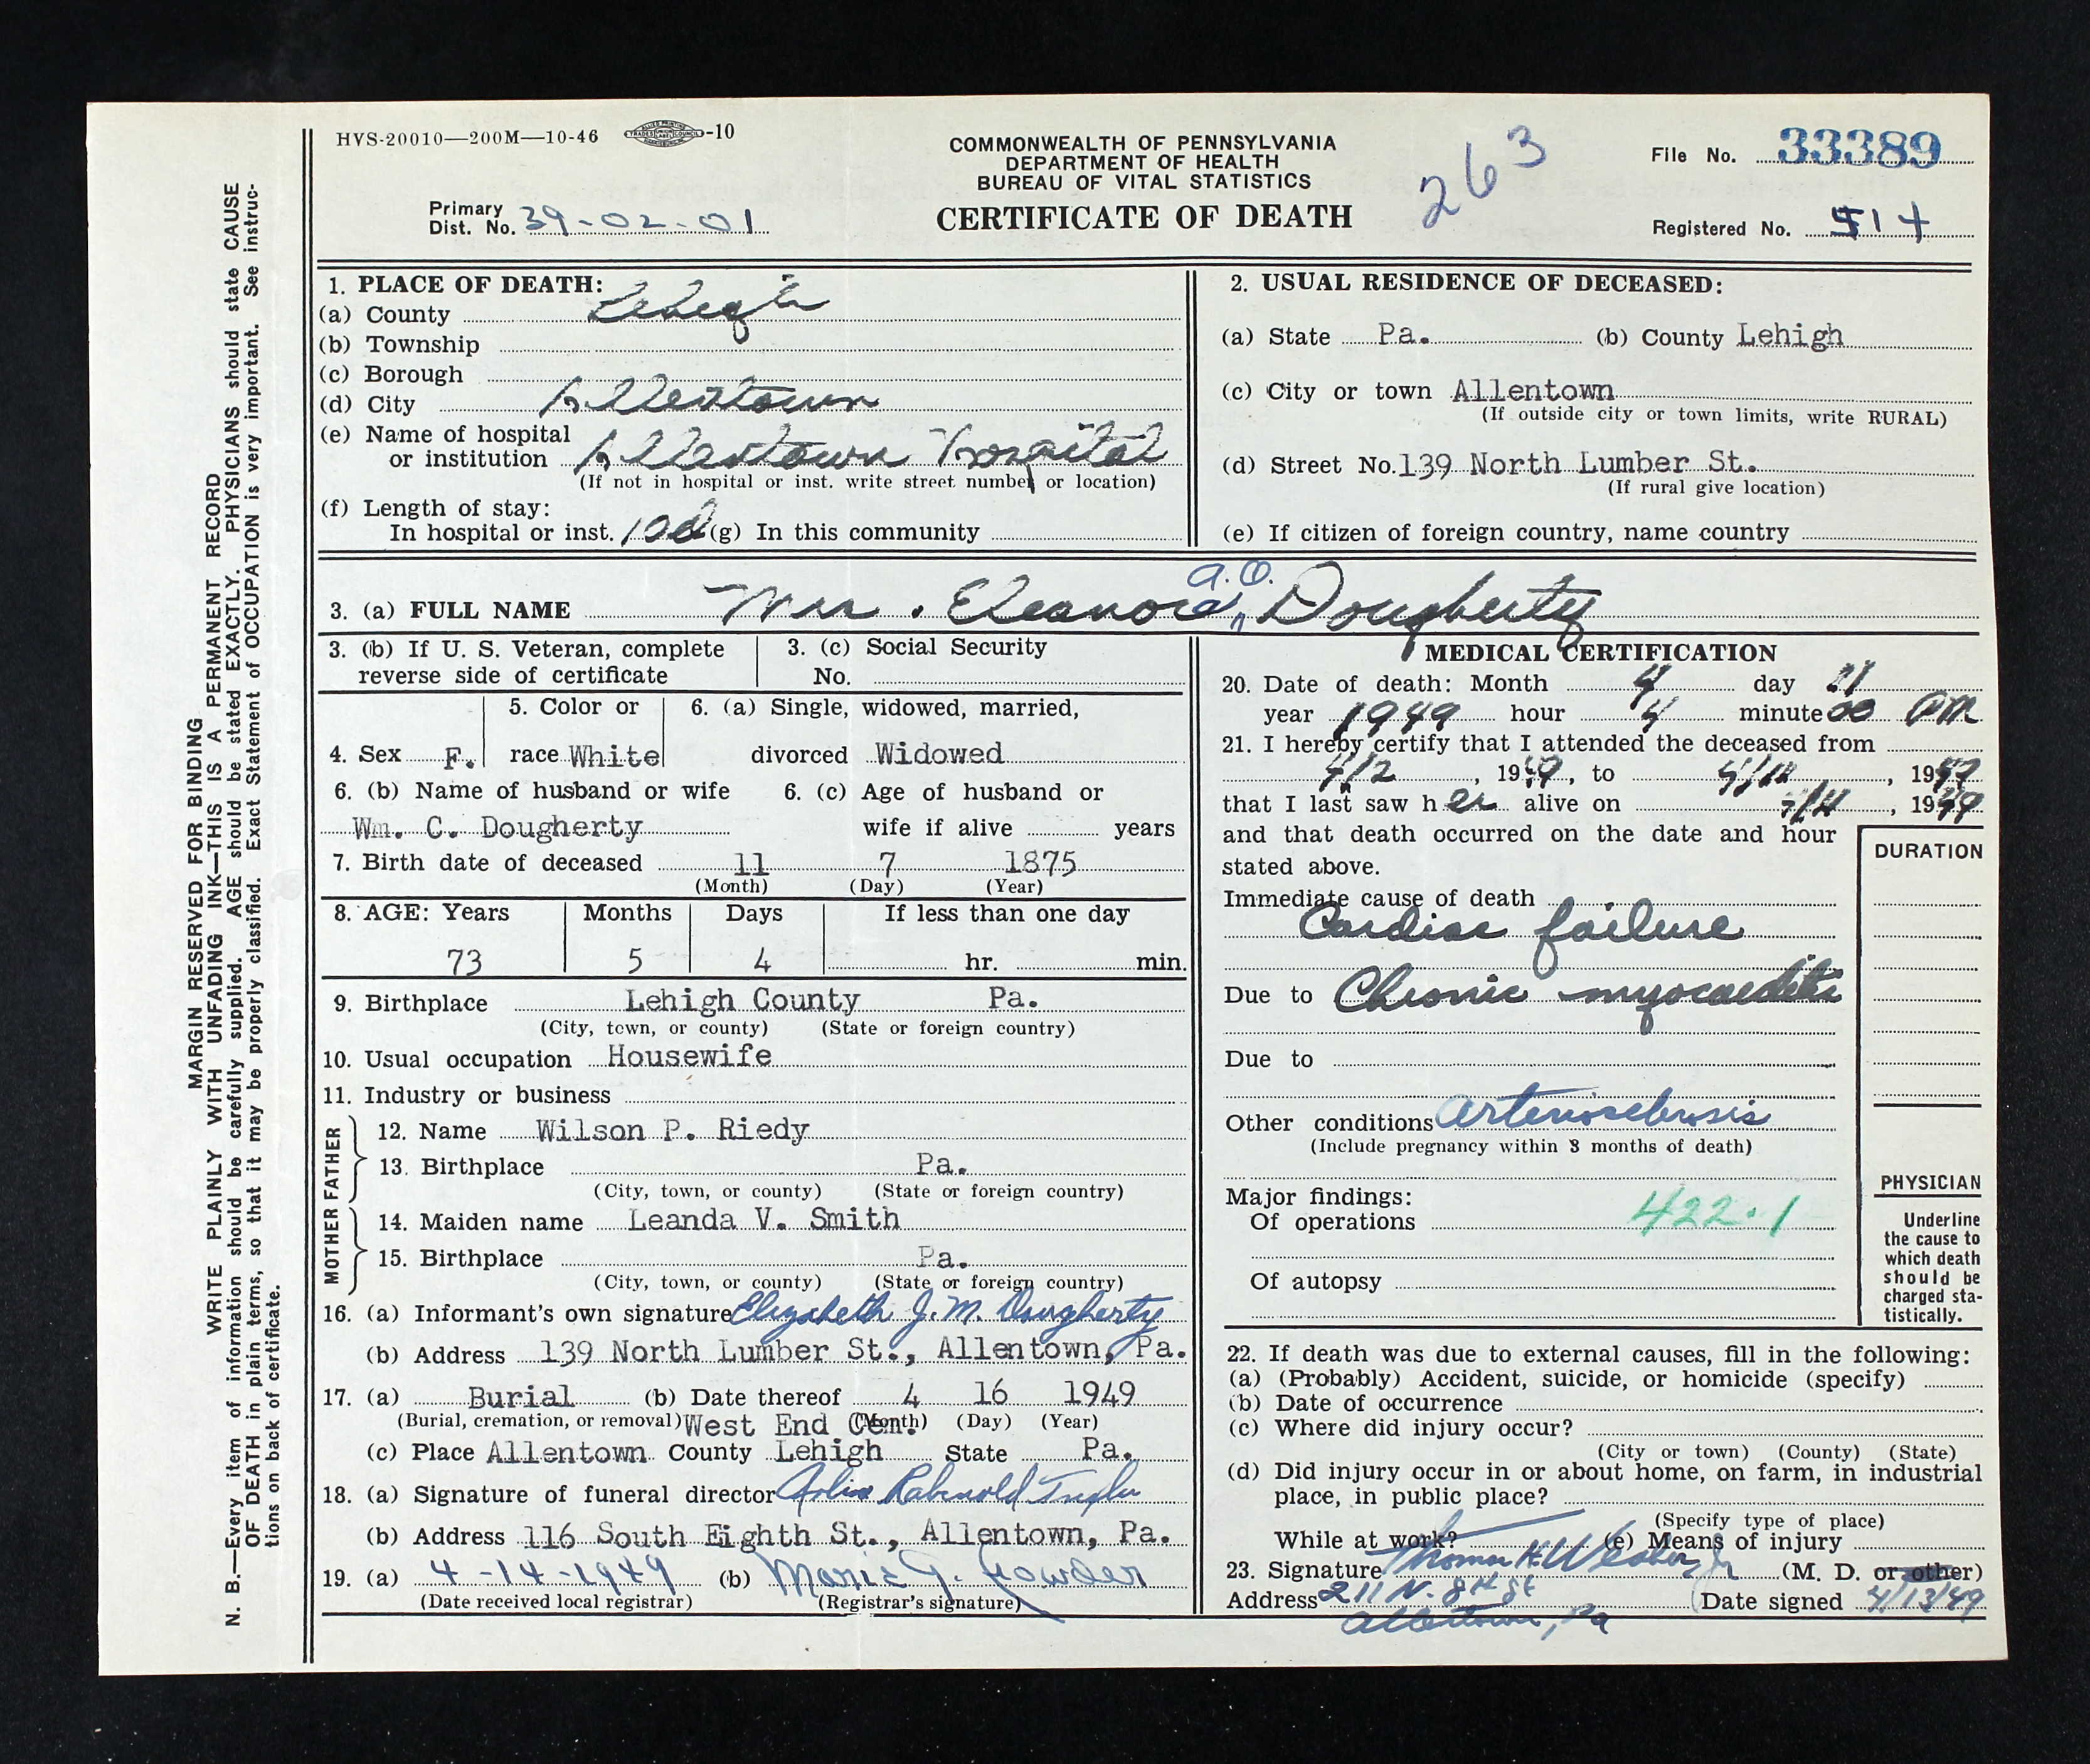 HVS-20010—200M—10-46 -10
COMMONWEALTH OF PENNSYLVANIA
DEPARTMENT OF HEALTH
BUREAU OF VITAL STATISTICS
CERTIFICATE OF DEATH
263
File No. 33389
Primary
Dist. No. 39-02-01
Registered No. 514
MARGIN RESERVED FOR BINDING
WRITE PLAINLY WITH UNFADING INK—THIS IS A PERMANENT RECORD
N. B.—Every item of information should be carefully supplied. AGE should be stated EXACTLY. PHYSICIANS should state CAUSE
OF DEATH in plain terms, so that it may be properly classified. Exact Statement of OCCUPATION is very important. See instruc-
tions on back of certificate.
1. PLACE OF DEATH:
(a) County Lehigh
(b) Township
(c) Borough
(d) City Allentown
(e) Name of hospital
or institution Allentown Hospital
(If not in hospital or inst. write street number or location)
(f) Length of stay:
In hospital or inst. 10d (g) In this community
2. USUAL RESIDENCE OF DECEASED:
(a) State Pa. (b) County Lehigh
(c) City or town Allentown
(If outside city or town limits, write RURAL)
(d) Street No. 139 North Lumber St.
(If rural give location)
(e) If citizen of foreign country, name country
a.O.
3. (a) FULL NAME Mrs. Eleanora Dougherty
3. (b) If U. S. Veteran, complete
reverse side of certificate
3. (c) Social Security
No.
4. Sex F.
5. Color or
race White
6. (a) Single, widowed, married,
divorced Widowed
6. (b) Name of husband or wife
Wm. C. Dougherty
6. (c) Age of husband or
wife if alive years
7. Birth date of deceased 11 7 1875
(Month) (Day) (Year)
8. AGE: Years Months Days If less than one day
73 5 4 hr. min.
9. Birthplace Lehigh County Pa.
(City, town, or county) (State or foreign country)
10. Usual occupation Housewife
11. Industry or business
FATHER
12. Name Wilson P. Riedy
13. Birthplace Pa.
(City, town, or county) (State or foreign country)
MOTHER
14. Maiden name Leanda V. Smith
15. Birthplace Pa.
(City, town, or county) (State or foreign country)
16. (a) Informant's own signature Elizabeth J. M. Dougherty
(b) Address 139 North Lumber St., Allentown, Pa.
17. (a) Burial (b) Date thereof 4 16 1949
(Burial, cremation, or removal) West End Cem. (Month) (Day) (Year)
(c) Place Allentown County Lehigh State Pa.
18. (a) Signature of funeral director Rabenold
(b) Address 116 South Eighth St., Allentown, Pa.
19. (a) 4-14-1949 (b) Marie G.
(Date received local registrar) (Registrar's signature)
MEDICAL CERTIFICATION
20. Date of death: Month 4 day 11
year 1949 hour 4 minute 00
21. I hereby certify that I attended the deceased from
4/2, 1949, to 19
that I last saw her alive on 19
and that death occurred on the date and hour
stated above.
DURATION
Immediate cause of death
Cardiac failure
Due to Chronic myocarditis
Due to
Other conditions Arteriosclerosis
(Include pregnancy within 3 months of death)
Major findings:
Of operations 422.1
Of autopsy
PHYSICIAN
Underline
the cause to
which death
should be
charged sta-
tistically.
22. If death was due to external causes, fill in the following:
(a) (Probably) Accident, suicide, or homicide (specify)
(b) Date of occurrence
(c) Where did injury occur?
(City or town) (County) (State)
(d) Did injury occur in or about home, on farm, in industrial
place, in public place?
(Specify type of place)
While at work? (e) Means of injury
23. Signature Thomas H. Weaber, Jr (M. D. or other)
Address 211 N. 8th St Date signed 4/13/49
Allentown, Pa